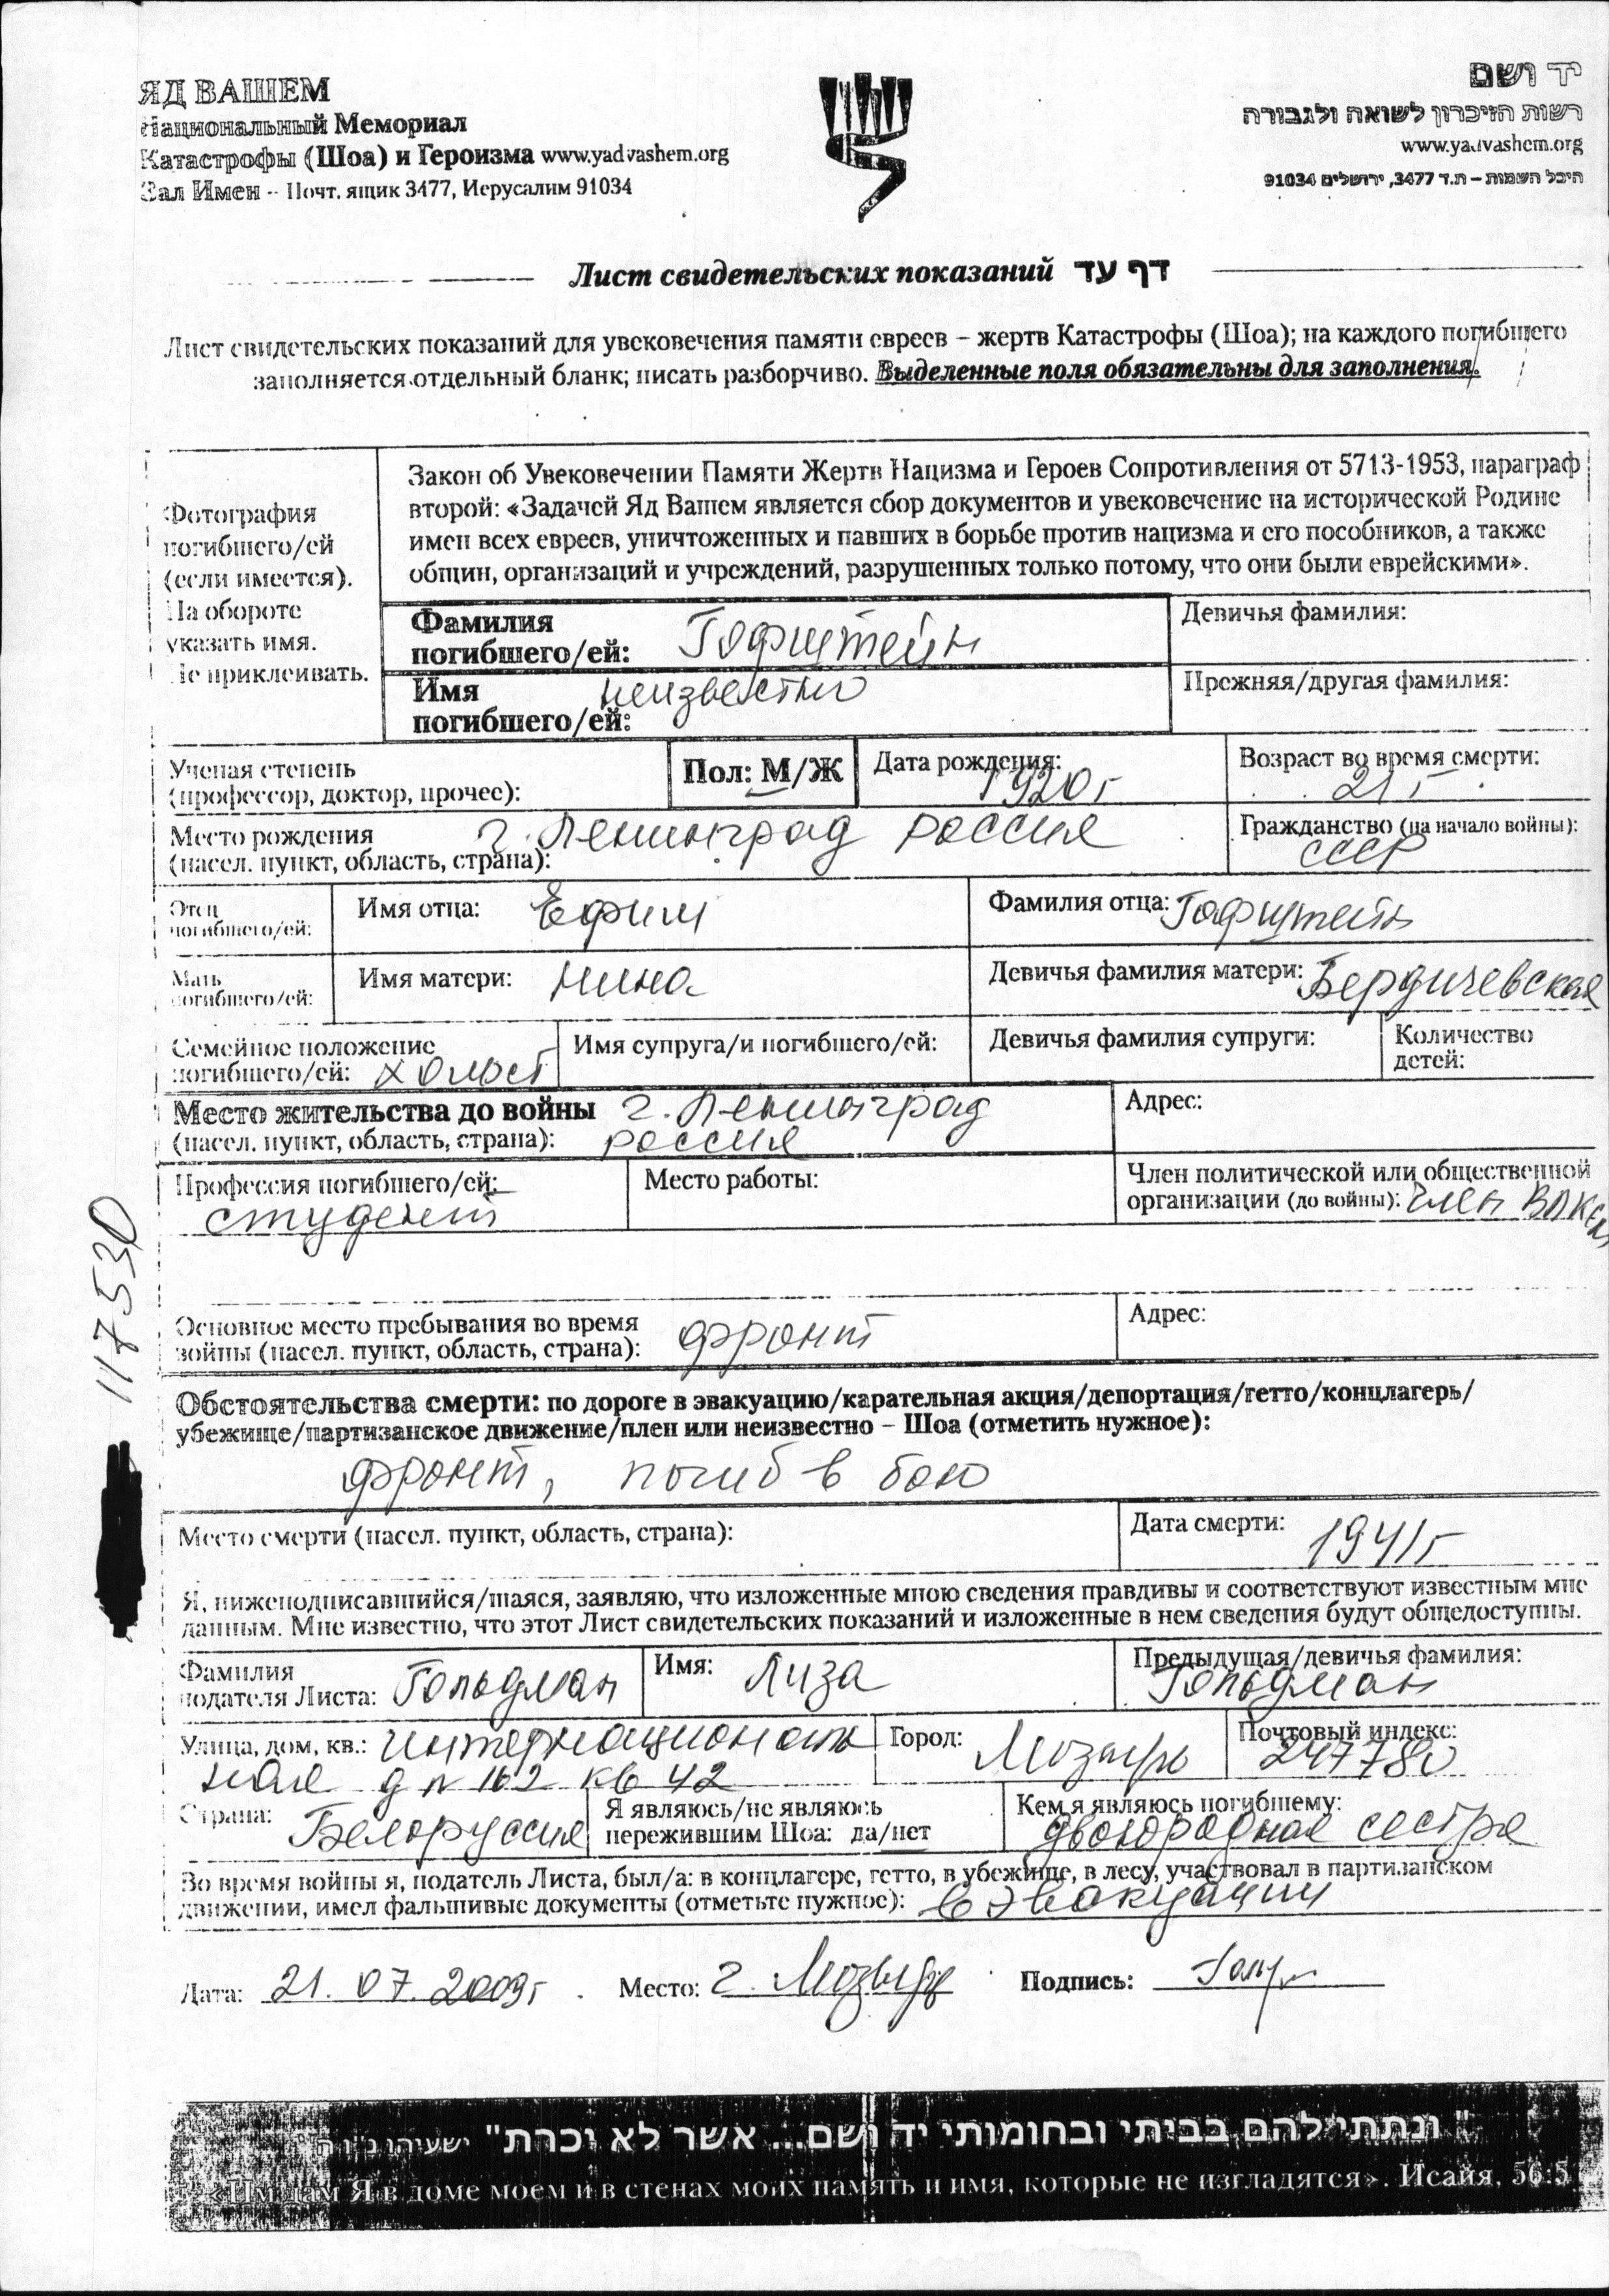 ЯД ВАШЕМ
Национальный Мемориал
Катастрофы (Шоа) и Героизма www.yadvashem.org
Зал Имен – Почт. ящик 3477, Иерусалим 91034
יד ושם
רשות הזיכרון לשואה ולגבורה
www.yadvashem.org
היכל השמות – ת.ד 3477, ירושלים 91034
Лист свидетельских показаний דף עד
Лист свидетельских показаний для увековечения памяти евреев – жертв Катастрофы (Шоа); на каждого погибшего
заполняется отдельный бланк; писать разборчиво. Выделенные поля обязательны для заполнения.
Фотография
погибшего/ей
(если имеется).
На обороте
указать имя.
Не приклеивать.
Закон об Увековечении Памяти Жертв Нацизма и Героев Сопротивления от 5713-1953, параграф
второй: «Задачей Яд Вашем является сбор документов и увековечение на исторической Родине
имен всех евреев, уничтоженных и павших в борьбе против нацизма и его пособников, а также
общин, организаций и учреждений, разрушенных только потому, что они были еврейскими».
Фамилия
погибшего/ей: Гофштейн
Девичья фамилия:
Имя
погибшего/ей: неизвестно
Прежняя/другая фамилия:
Ученая степень
(профессор, доктор, прочее):
Пол: М/Ж
Дата рождения: 1920г
Возраст во время смерти:
21 г
Место рождения
(насел. пункт, область, страна): г. Ленинград россия
Гражданство (на начало войны):
СССР
Отец
погибшего/ей:
Имя отца: Ефим
Фамилия отца: Гофштейн
Мать
погибшего/ей:
Имя матери: Нина
Девичья фамилия матери: Бердичевская
Семейное положение
погибшего/ей: холост
Имя супруга/и погибшего/ей:
Девичья фамилия супруги:
Количество
детей:
Место жительства до войны г. Ленинград
(насел. пункт, область, страна): россия
Адрес:
Профессия погибшего/ей:
студент
Место работы:
Член политической или общественной
организации (до войны): член ВЛКСМ
Основное место пребывания во время
войны (насел. пункт, область, страна): фронт
Адрес:
Обстоятельства смерти: по дороге в эвакуацию/карательная акция/депортация/гетто/концлагерь/
убежище/партизанское движение/плен или неизвестно – Шоа (отметить нужное):
фронт, погиб в бою
Место смерти (насел. пункт, область, страна):
Дата смерти:
1941г
Я, нижеподписавшийся/шаяся, заявляю, что изложенные мною сведения правдивы и соответствуют известным мне
данным. Мне известно, что этот Лист свидетельских показаний и изложенные в нем сведения будут общедоступны.
Фамилия
подателя Листа: Гольдман
Имя: Лиза
Предыдущая/девичья фамилия:
Гольдман
Улица, дом, кв.: интернациональ
ная д № 162 кв 42
Город: Мозырь
Почтовый индекс:
247780
Страна: Белоруссия
Я являюсь/не являюсь
пережившим Шоа: да/нет
Кем я являюсь погибшему:
двоюродная сестра
Во время войны я, податель Листа, был/а: в концлагере, гетто, в убежище, в лесу, участвовал в партизанском
движении, имел фальшивые документы (отметьте нужное): в эвакуации
Дата: 21.07.2009г. Место: г. Мозырь Подпись:
117530
"ונתתי להם בביתי ובחומותי יד ושם... אשר לא יכרת" ישעיהו נ"ו ה'
«Им дам Я в доме моем и в стенах моих память и имя, которые не изгладятся». Исайя, 56:5